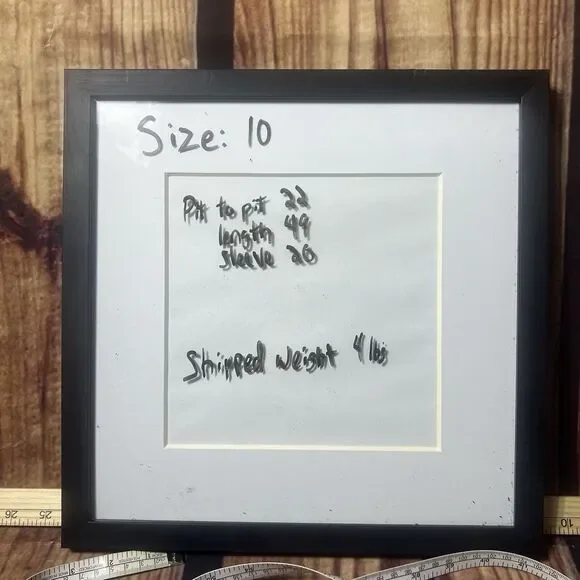 Size: 10
Pit to pit 22
length 49
sleeve 26
Shipped weight 4 lbs
26 25
10